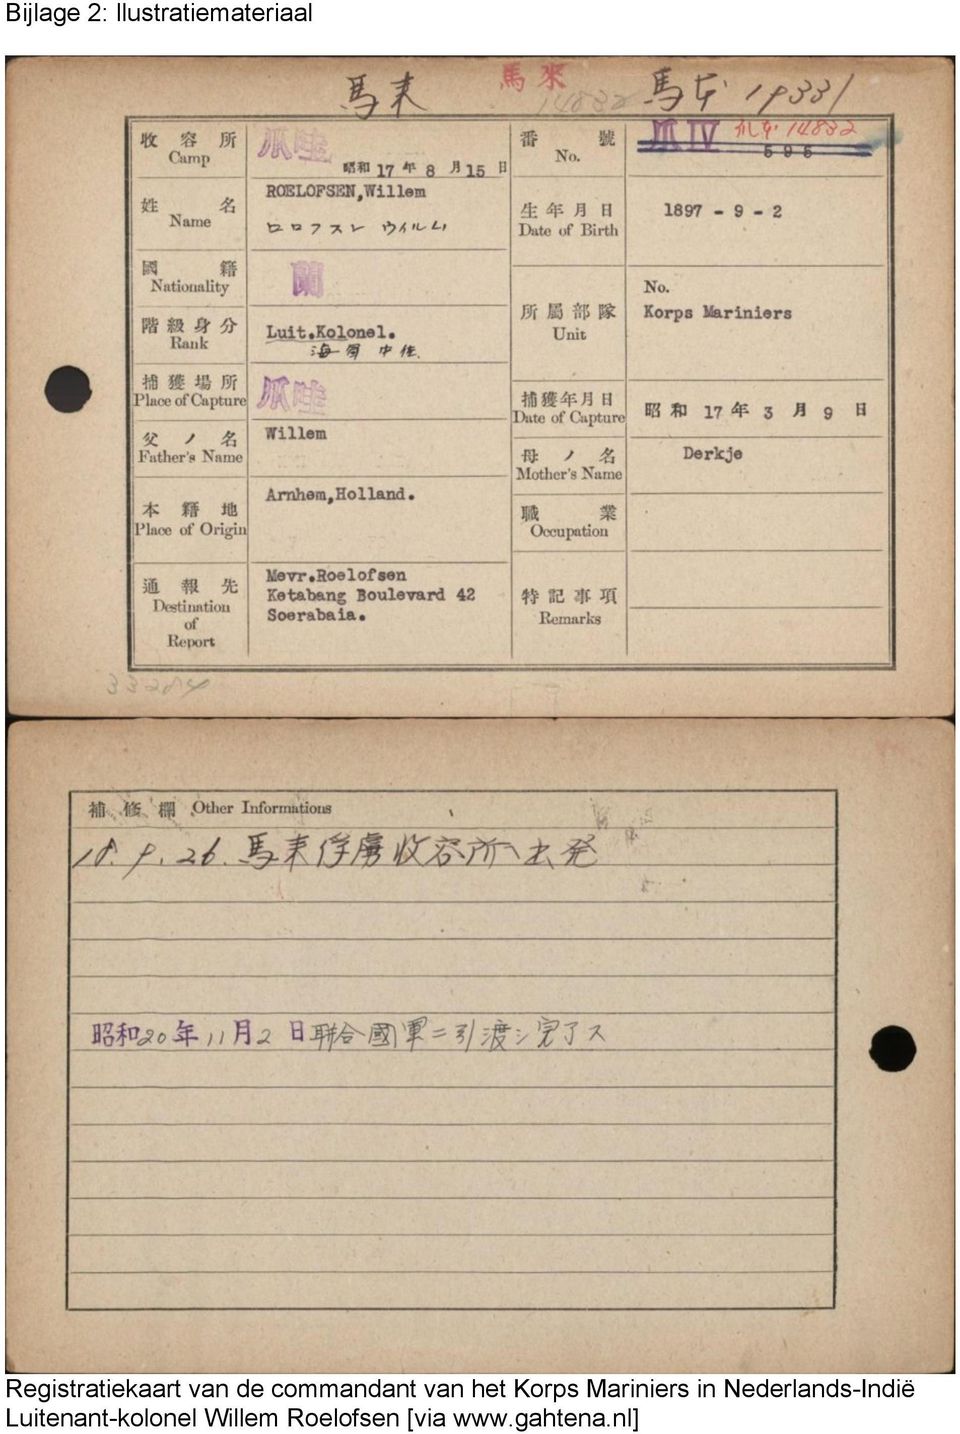 Bijlage 2: Ilustratiemateriaal
馬来 馬來 馬本 19331
14832
收容所 爪哇 昭和17年8月15日
Camp
番號 爪IV 爪本 14832
No. 596
姓名 ROELOFSEN,Willem
Name ロロフスレ ウイルム
生年月日 1897 - 9 - 2
Date of Birth
國籍 蘭
Nationality
階級身分 Luit.Kolonel.
Rank 海軍中佐
所屬部隊 No.
Unit Korps Mariniers
捕獲場所 爪哇
Place of Capture
捕獲年月日 昭和 17 年 3 月 9 日
Date of Capture
父ノ名 Willem
Father's Name
母ノ名 Derkje
Mother's Name
本籍地 Arnhem,Holland.
Place of Origin
職業
Occupation
通報先 Mevr.Roelofsen
Destination Ketabang Boulevard 42
of Soerabaia.
Report
特記事項
Remarks
33284
補修欄 Other Informations
18.9.26.馬来俘虜收容所ヘ出発
昭和20年11月2日聯合國軍ニ引渡シ完了ス
Registratiekaart van de commandant van het Korps Mariniers in Nederlands-Indië
Luitenant-kolonel Willem Roelofsen [via www.gahtena.nl]